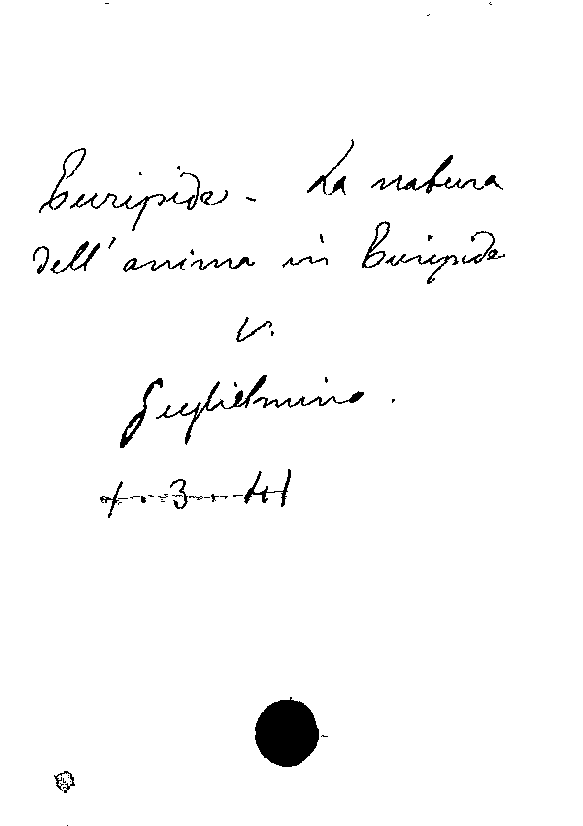 Euripide - La natura
dell'anima in Euripide
V.
Guglielmino.